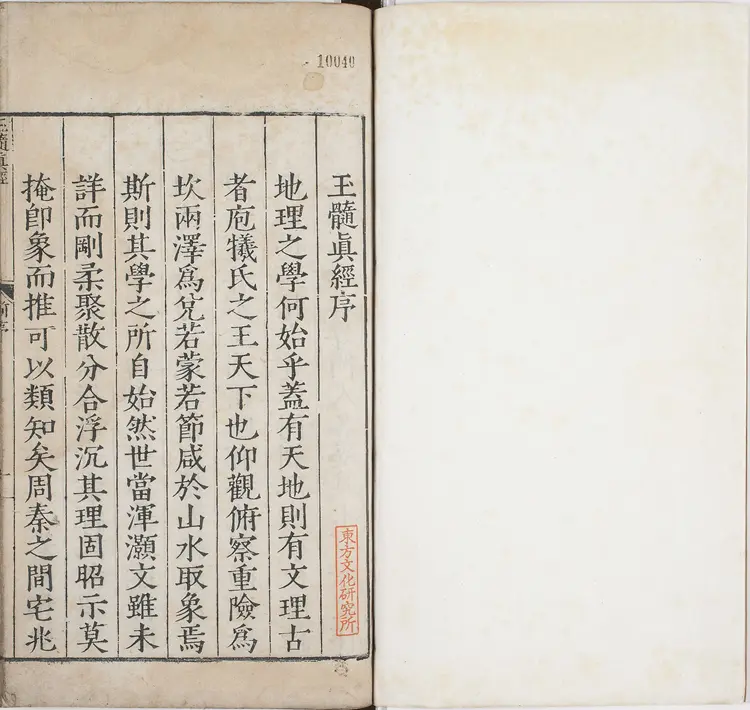 10040
玉髓眞經序
地理之學何始乎蓋有天地則有文理古
者庖犧氏之王天下也仰觀俯察重險爲
坎兩澤爲兌若蒙若節咸於山水取象焉
斯則其學之所自始然世當渾灝文雖未
詳而剛柔聚散分合浮沉其理固昭示莫
掩卽象而推可以類知矣周秦之間宅兆
玉髓眞經
前序
一
東方文化研究所